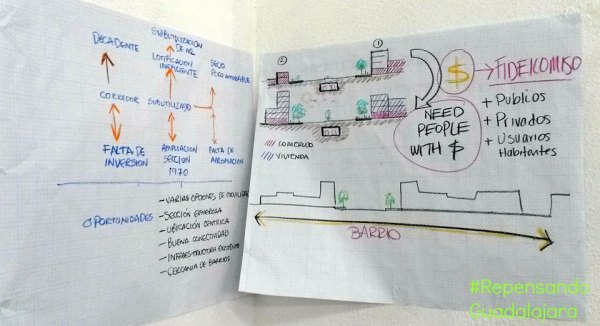 DECADENTE
SUBUTILIZACIÓN
DE M2
LOTIFICACIÓN
INEFICIENTE
SECO
POCO AMIGABLE
CORREDOR
SUBUTILIZADO
FALTA DE
INVERSION
AMPLIACION
SECCION
1970
FALTA DE
APROPIACIÓN
OPORTUNIDADES
- VARIAS OPCIONES DE MOVILIDAD
- SECCIÓN GENEROSA
- UBICACIÓN CÉNTRICA
- BUENA CONECTIVIDAD
- INFRAESTRUCTURA EXISTENTE
- CERCANIA DE BARRIOS
2
1
COMERCIO
VIVIENDA
$
FIDEICOMISO
NEED
PEOPLE
WITH $
+ Publicos
+ Privados
+ Usuarios
Habitantes
BARRIO
#Repensando
Guadalajara